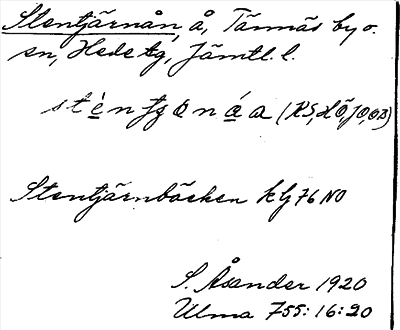 Stentjärnån, å, Tännäs by o.
sn, Hede tg, Jämtl. l.
(KS, HÖ, JO, OB)
Stentjärnbäcken kbg 76 NO
S. Åsander 1920
Ulma 755:16:20